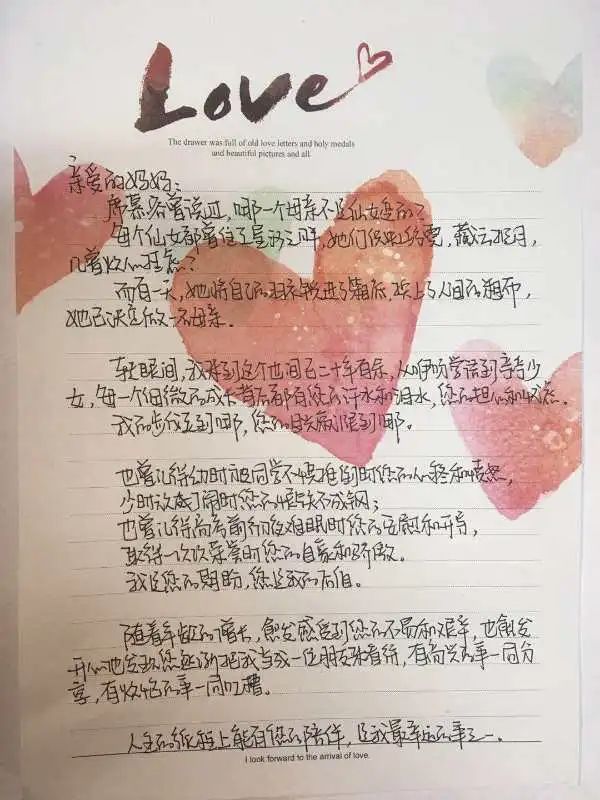 Love
The drawer was full of old love letters and holy medals
and beautiful pictures and all.
亲爱的妈妈：
席慕容曾说过，哪一个母亲不是仙女变的？
每个仙女都曾住了星形之畔，她们织虹纺霓，藏云捉月，
几曾烦心挂虑？
而有一天，她将自己的羽衣锁进了箱底，换上了人间的粗布，
她已决定做一名母亲。
转眼间，我来到这个世间已二十年有余，从咿呀学语到亭亭少
女，每一个细微的成长背后都有您的汗水和泪水，您的担心和忧虑。
我的步伐至到哪，您的目光就跟到哪。
也曾记得幼时被同学不慎推倒时您的心疼和愤怒，
少时放肆打闹时您的恨铁不成钢；
也曾记得高考前彻夜难眠时您的安慰和开导，
取得一次次荣誉时您的自豪和骄傲。
我是您的期盼，您是我的后盾。
随着年龄的增长，愈发感受到您的不易和艰辛，也愈发
开心地发现您逐渐把我当成一位朋友来看待，有高兴的事一同分
享，有烦恼的事一同吐槽。
人生的旅程上能有您的陪伴，是我最幸运的事之一。
I look forward to the arrival of love.